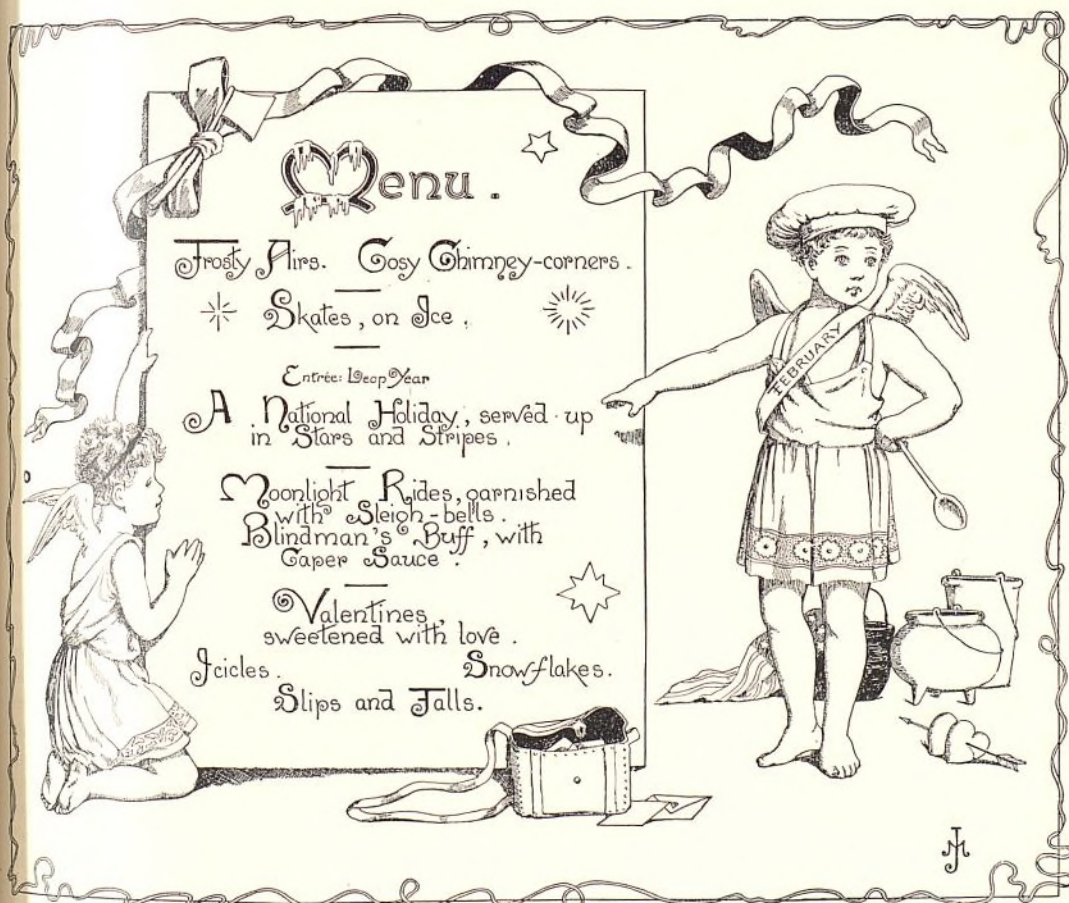 Menu.
Frosty Airs. Cosy Chimney-corners.
Skates, on Ice.
Entrée: Leap Year
A National Holiday, served up
in Stars and Stripes.
Moonlight Rides, garnished
with Sleigh-bells.
Blindman's Buff, with
Caper Sauce.
Valentines,
sweetened with love.
Icicles. Snowflakes.
Slips and Falls.
FEBRUARY
JM